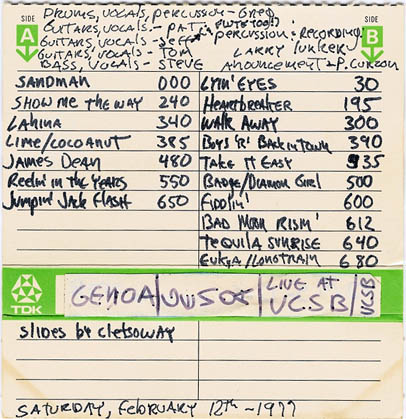 DRUMS, VOCALS, PERCUSSION - GREG
GUITARS, VOCALS - PATT
FLUTE TOO!)
GUITARS, VOCALS - JEFF
PERCUSSION: RECORDING
GUITARS, VOCALS - TOM
LARRY
BASS, VOCALS - STEVE
ANOUNCEMENT - P. CURZON
SIDE A
SIDE B
SANDMAN 000
SHOW ME THE WAY 240
LAHINA 340
LIME/COCOANUT 385
JAMES DEAN 480
REELIN' IN THE YEARS 550
JUMPIN' JACK FLASH 650
LYIN' EYES 30
HEARTBREAKER 195
WALK AWAY 300
BOYS R' BACK IN TOWN 390
TAKE IT EASY 335
BADGE/DIAMON GIRL 500
FIDDLIN' 600
BAD MOON RISIN' 612
TEQUILA SUNRISE 640
680
TDK
GENOA
LIVE AT UCSB
UCSB
SLIDES BY CLETSOWAY
SATURDAY, FEBRUARY 12TH - 1977